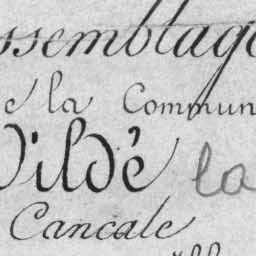 ssemblage
e la Commun
Vildé la
Cancale